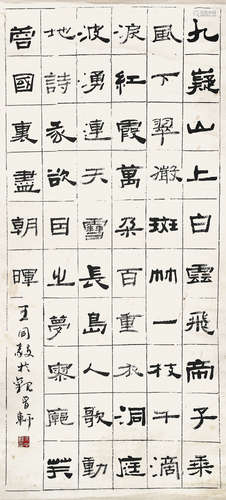 九嶷山上白雲飛帝子乘
風下翠微斑竹一枝千滴
淚紅霞萬朵百重衣洞庭
波湧連天雪長島人歌動
地詩我欲因之夢寥廓芙
蓉國裏盡朝暉
王同於軒